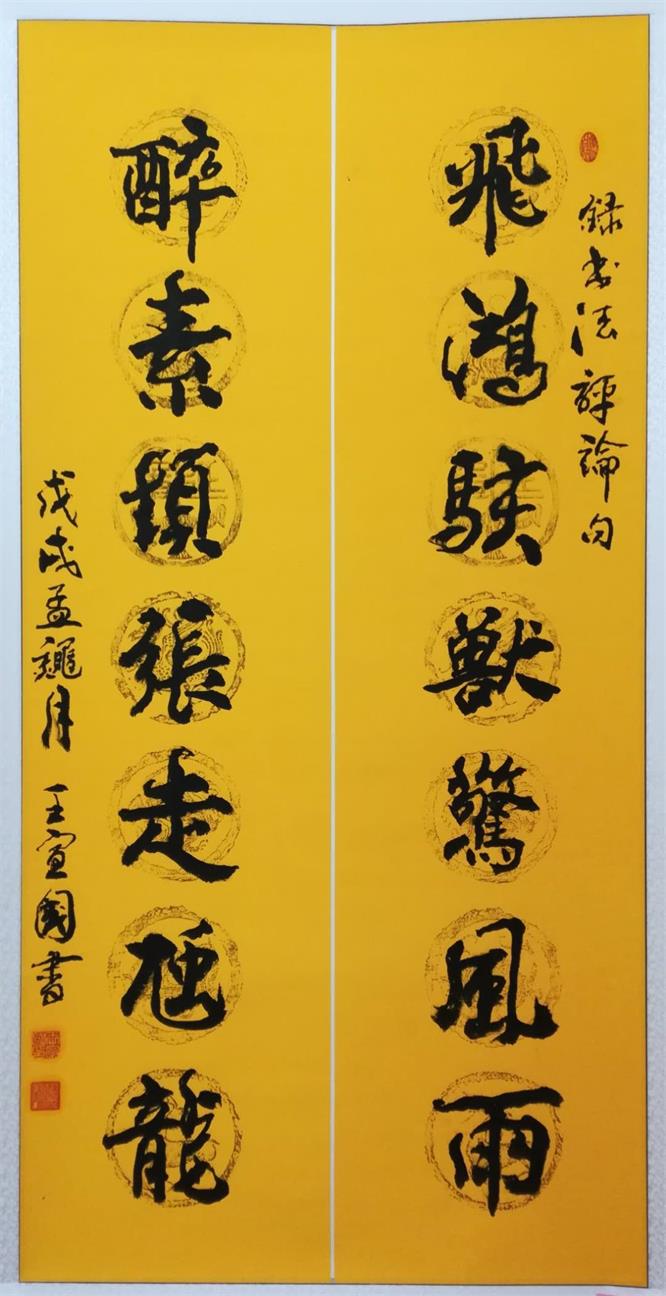 録書法評論句
飛鴻駭獸驚風雨
醉素顛張走虺龍
戊戌孟龝月 王宣國書